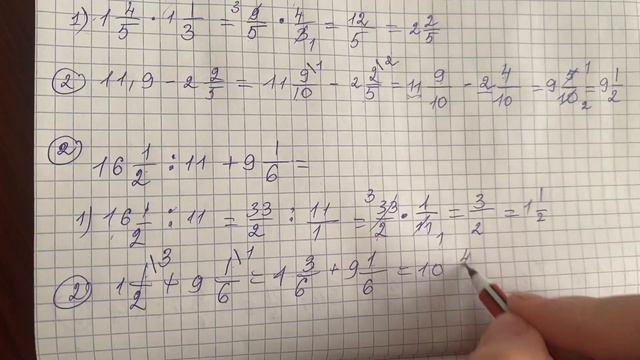 1) 1 4/5 · 1 1/3 = 9/5 · 4/3 = 12/5 = 2 2/5
2) 11,9 - 2 2/5 = 11 9/10 - 2 2/5 = 11 9/10 - 2 4/10 = 9 5/10 = 9 1/2
2) 16 1/2 : 11 + 9 1/6 =
1) 16 1/2 : 11 = 33/2 : 11/1 = 33/2 · 1/11 = 3/2 = 1 1/2
2) 1 1/2 + 9 1/6 = 1 3/6 + 9 1/6 = 10 4